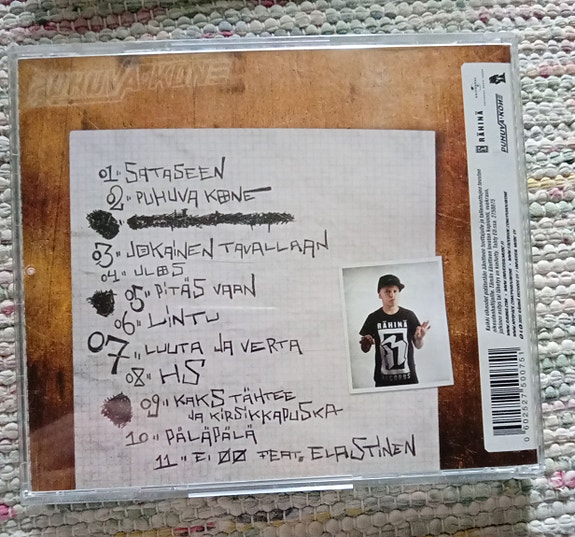 PUHUVA KONE
01" SATASEEN
02" PUHUVA KONE
03" JOKAINEN TAVALLAAN
04" ULOS
05" PITÄS VAAN
06" LINTU
07" LUUTA JA VERTA
08" HS
09" KAKS TÄHTEE
JA KIRSIKKAPUSKA
10" PÄLÄPÄLÄ
11" EI ØØ FEAT. ELASTINEN
RÄHINÄ
RECORDS
RÄHINÄ
PUHUVA KONE
0 602527 500751